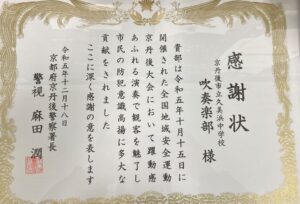 感謝状
京丹後市立久美浜中学校
吹奏楽部 様
貴部は令和五年十月十五日に
開催された全国地域安全運動
京丹後大会において躍動感
あふれる演奏で観客を魅了し
市民の防犯意識高揚に多大な
貢献をされました
ここに深く感謝の意を表します
令和五年十二月十八日
京都府京丹後警察署長
警視 麻田 潤